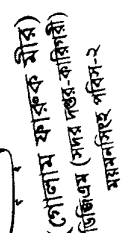 (গোলাম ফারুক মীর)
ডিজিএম (সদর দপ্তর-কারিগরী)
ময়মনসিংহ পবিস-২